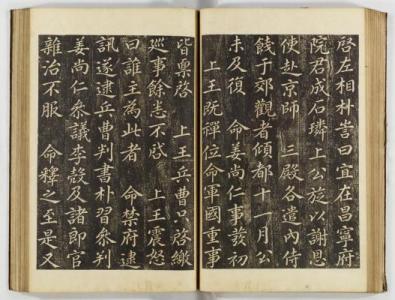 啓左相朴訔曰宜在昌寧府
院君成石璘上公旋以謝恩
使赴京師　三殿各遣內侍
餞于郊觀者傾都十一月公
未及復　命姜尚仁事發初
上王旣禪位命軍國重事
皆稟啓　上王兵曹只啓繳
巡事餘悉不啓　上王震怒
曰誰主為此者　命禁府逮
訊遂逮兵曹判書朴習叅判
姜尚仁叅議李慤及諸郎官
雜治不服　命釋之至是又